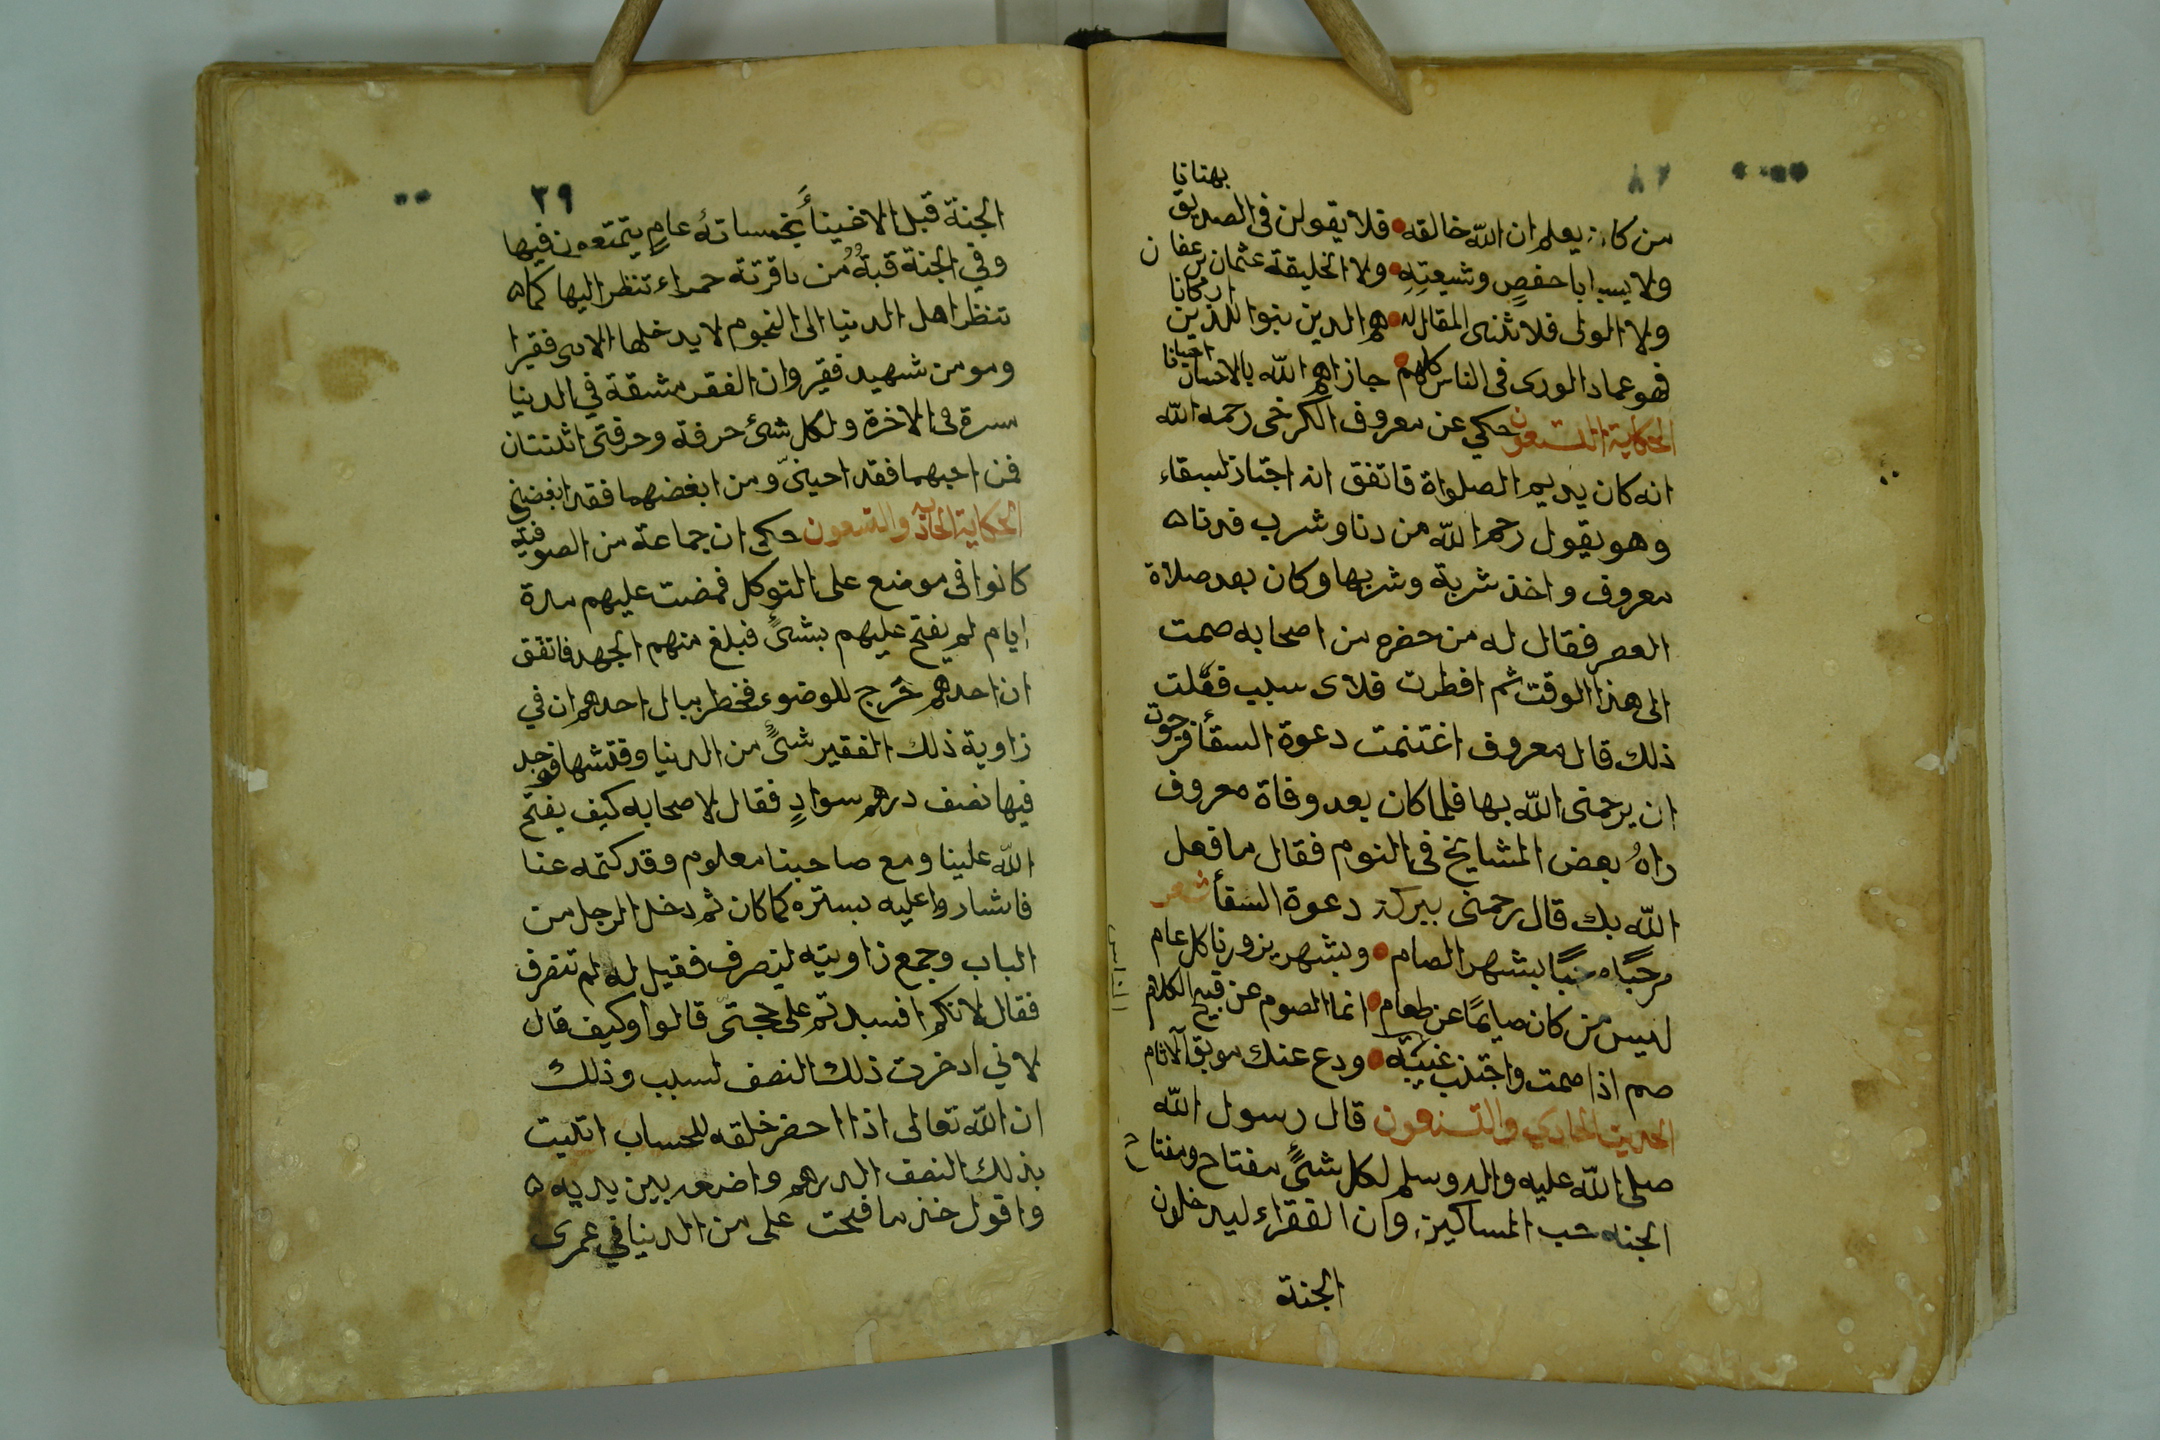 من كان يعلم ان الله خالقه فلا يقولن فى الصديق بهتانا
ولا يسب ابا حفصٍ وشيعتِهِ ولا الخليفة عثمان بن عفان
ولا الولى فلا تثنى المقال له هم الدين بنوا للدين اركانا
فهو عماد الورى فى الناس كلهم جازاهم الله بالاحسان احيانا
الحكاية التسعون حكي عن معروف الكرخى رحمه الله
انه كان يديم الصلواة فاتفق انه اجتاز لسقاء
وهو يقول رحم الله من دنا وشرب فدنا ه
معروف واخذ شربة وشربها وكان بعد صلاة
العصر فقال له من حضره من اصحابه صمت
الى هذا الوقت ثم افطرت فلاى سبب فعلت
ذلك قال معروف اغتنمت دعوة السقأ فرجوت
ان يرحمنى الله بها فلما كان بعد وفاة معروف
راهُ بعض المشايخ فى النوم فقال ما فعل
الله بك قال رحمنى ببركة دعوة السقأ شعر
مرحبًا مرحبًا بشهر الصام وبشهر يزورنا كل عام
ليس من كان صايمًا عن طعام انما الصوم عن قبيح الكلام
صم اذا صمت واجتنب غيبته ودع عنك موبق الآثام
الحديث الحادي والتسعون قال رسول الله
صلى الله عليه واله وسلم لكل شىءٍ مفتاح ومفتاح
الجنه حب المساكين وان الفقراء ليدخلون
الجنة
٣٩
الجنة قبل الاغنيأَ بخمسائةُ عامٍ يتمتعون فيها
وفي الجنة قبةٌ من ياقوتة حمراء تنظر اليها كما ه
تنظر اهل الدنيا الى النجوم لا يدخلها الا نبى فقيرا
ومومن شهيد فقير وان الفقر مشقة في الدنيا
مسرة فى الاخرة ولكل شئ حرفة وحرفتى اثنتان
فمن احبهما فقد احبنىّ ومن ابغضهما فقد ابغضنى
الحكاية الحاديه والتسعون حكي ان جماعة من الصوفيه
كانوا فى موضع على التوكل فمضت عليهم مدة
ايام لم يفتح عليهم بشىءٍ فبلغ منهم الجهد فاتفق
ان احدهم خَرج للوضوء فخطر ببال احدهم ان في
زاوية ذلك الفقير شىءٌ من الدنيا وفتشها فوجد
فيها نصف درهم سوادٍ فقال لاصحابه كيف يفتح
الله علينا ومع صاحبنا معلوم وقد كتمه عنا
فاشاروا عليه بستره كما كان ثم دخل الرجل من
الباب وجمع زاويته لينصرف فقيل له لم تنصرف
فقال لانكم افسدتم على حجتىّ قالوا وكيف قال
لاني ادخرت ذلك النصف لسبب وذلك
ان الله تعالى اذا احضر خلقه للحساب اتليت
بذلك النصف الدرهم واضعه بين يديه ه
واقول خذ ما فتحت على من الدنيا في عمرى